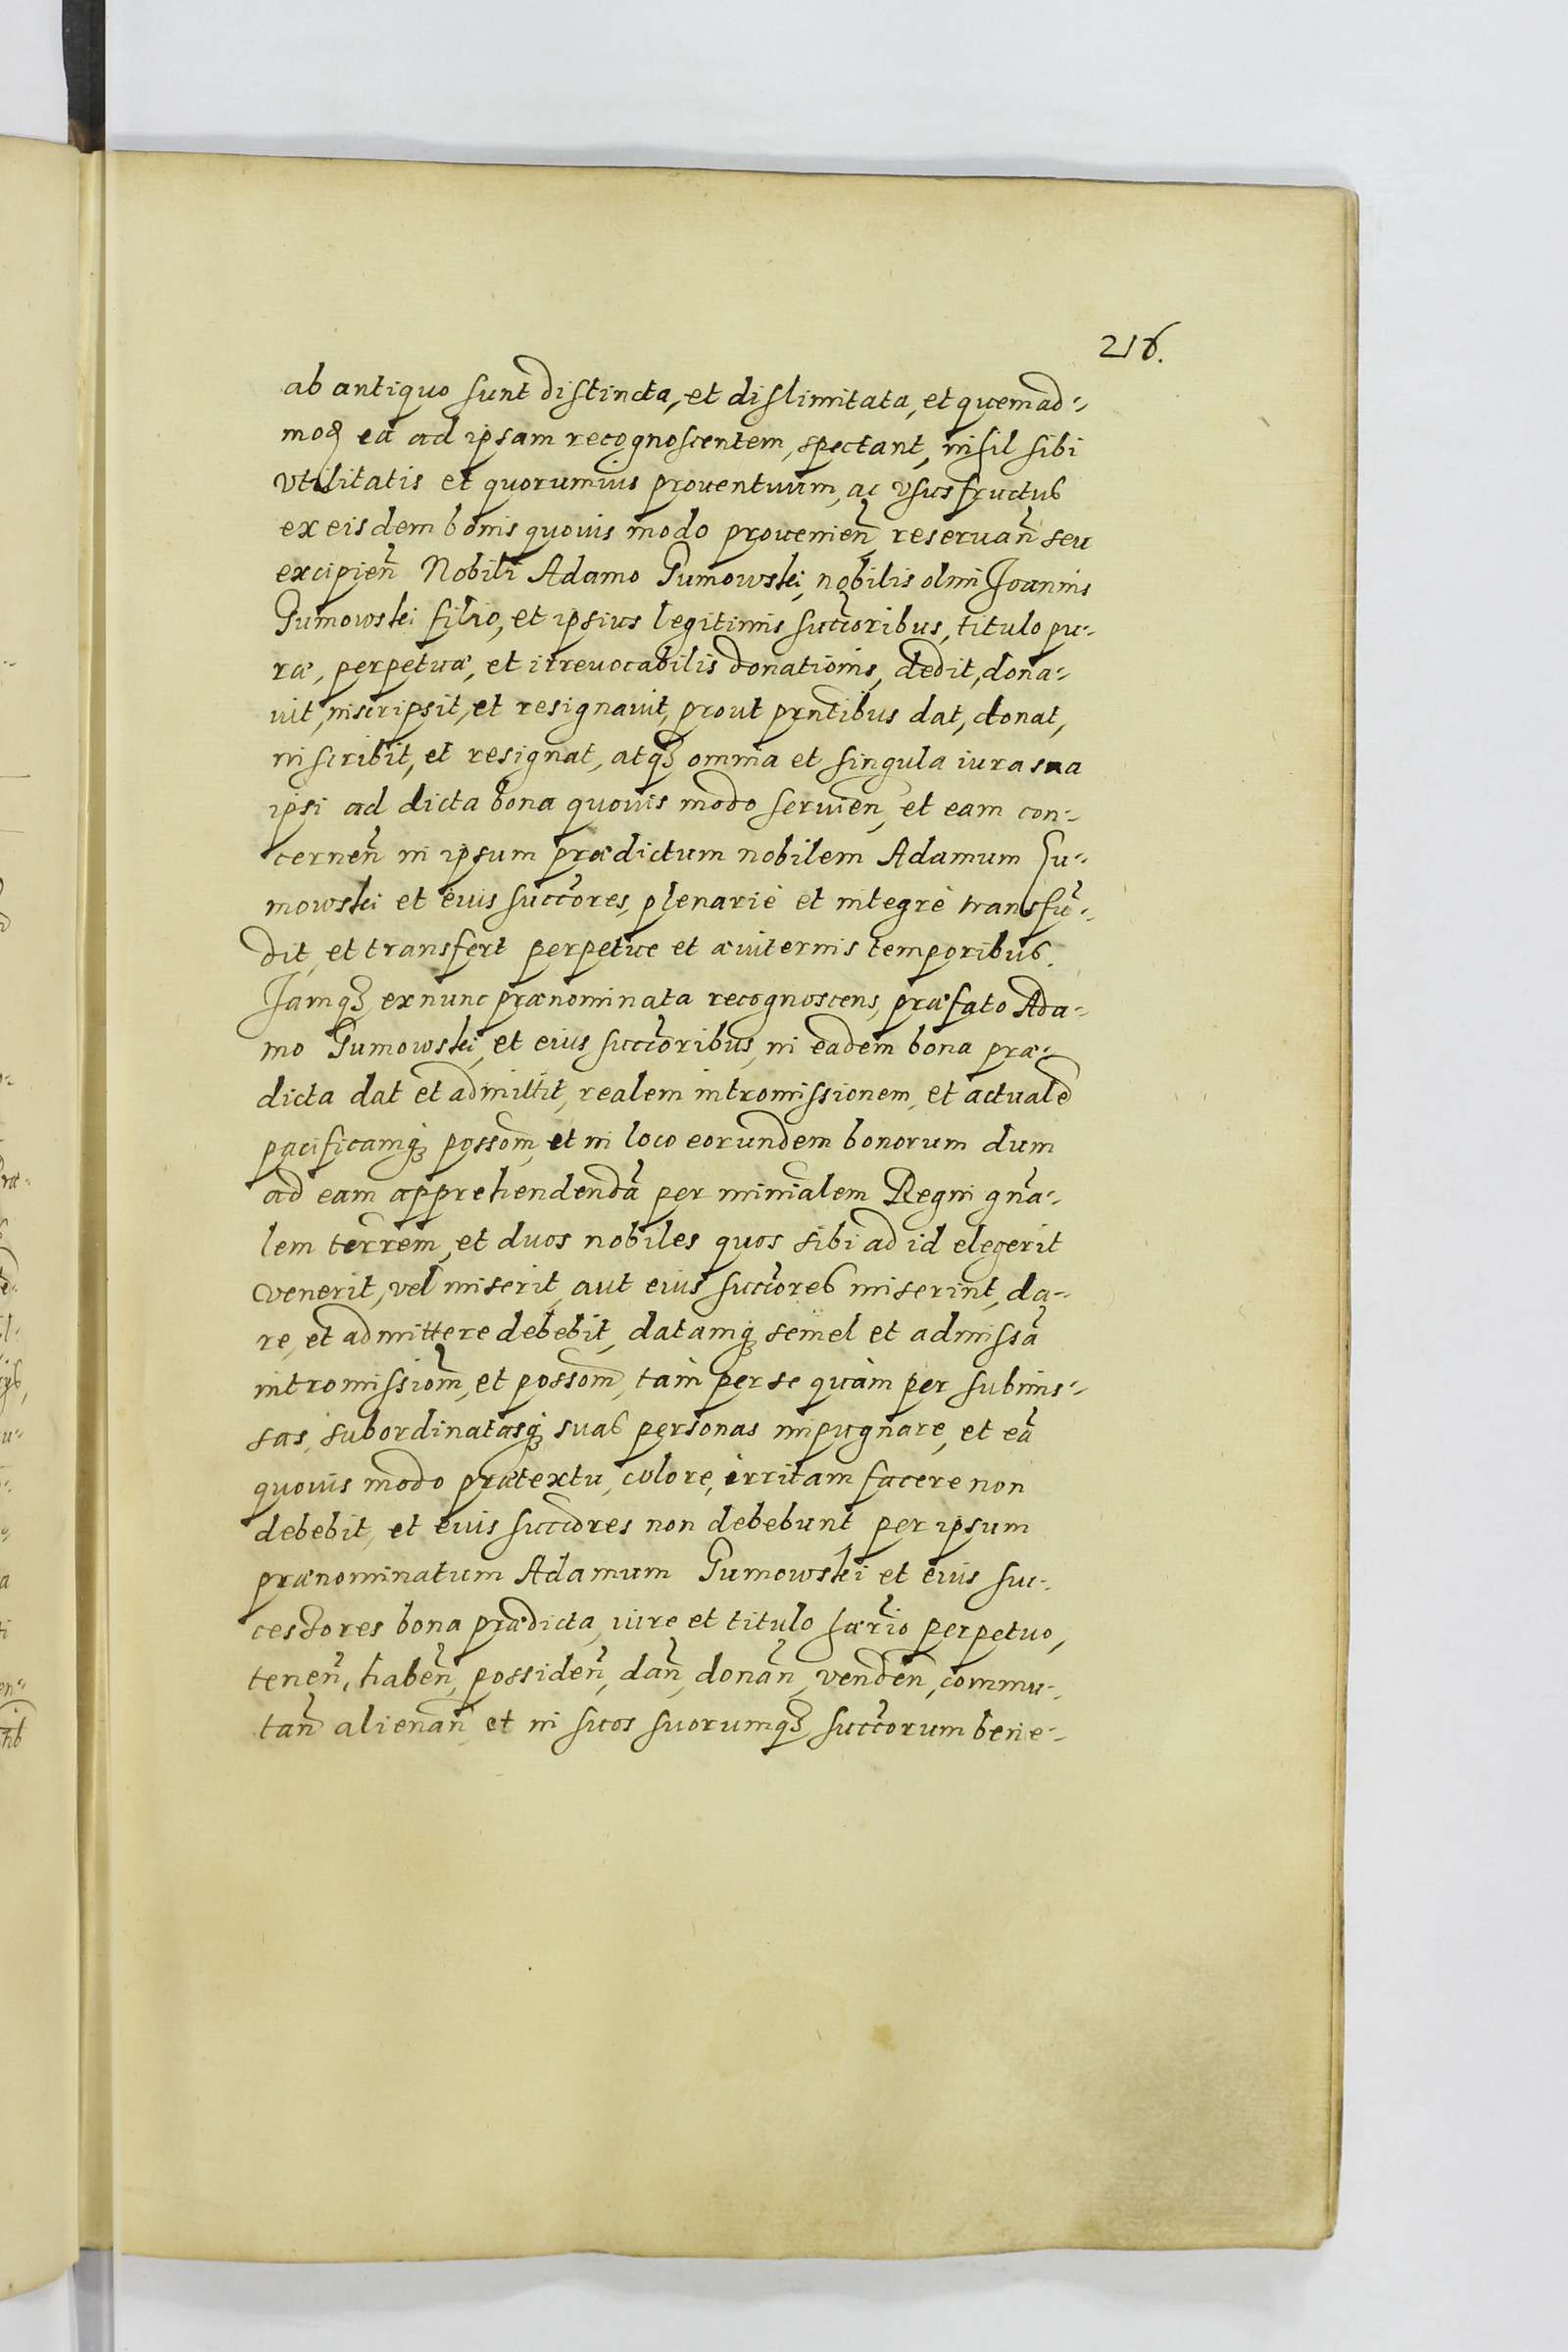 216.
ab antiquo sunt distincta, et dislimitata, et quemad-
mod ea ad ipsam recognoscentem, spectant, nihil sibi
vtilitatis et quorumuis prouentuum, ac vsusfructus
ex eisdem bonis quouis modo prouenien̄ reseruan̄ seu
excipien̄ Nobili Adamo Gumowski, nobilis olim Joannis
Gumowski filio, et ipsius legitimis succōribus, titulo pu-
ræ, perpetuæ, et irreuocabilis donationis, dedit, dona-
uit, inscripsit, et resignauit, prout prn̄tibus dat, donat,
inscribit, et resignat, atq; omnia et singula iura sua
ipsi ad dicta bona quouis modo seruien̄, et eam con-
cernen̄ in ipsum prædictum nobilem Adamum Gu-
mowski et eius succōres, plenariè et integrè transfū-
dit, et transfert perpetue et æuiternis temporibus.
Jamq; exnunc prænominata recognoscens, præfato Ada-
mo Gumowski, et eius succōribus, in eadem bona præ-
dicta dat et admittit, realem intromissionem, et actualē
pacificamq; possom̄, et in loco eorundem bonorum dum
ad eam apprehendendā per minialem Regni gn̄a-
lem terrēm, et duos nobiles quos sibi ad id elegerit
venerit, vel miserit, aut eius succōres miserint, da-
re, et admittere debebit, datamq; semel et admissā
intromissiom̄, et possom̄, tam per se quàm per submis-
sas, subordinatasq; suas personas impugnare, et eā
quouis modo prætextu, colore, irritam facere non
debebit, et eius succōres non debebunt per ipsum
prænominatum Adamum Gumowski et eius suc-
cessores bona prædicta, iure et titulo hærio perpetuo,
tenen̄, haben̄, possiden̄, dan̄, donan̄, venden̄, commu-
tan̄ alienan̄ et in suos suorumq; succōrum bene-